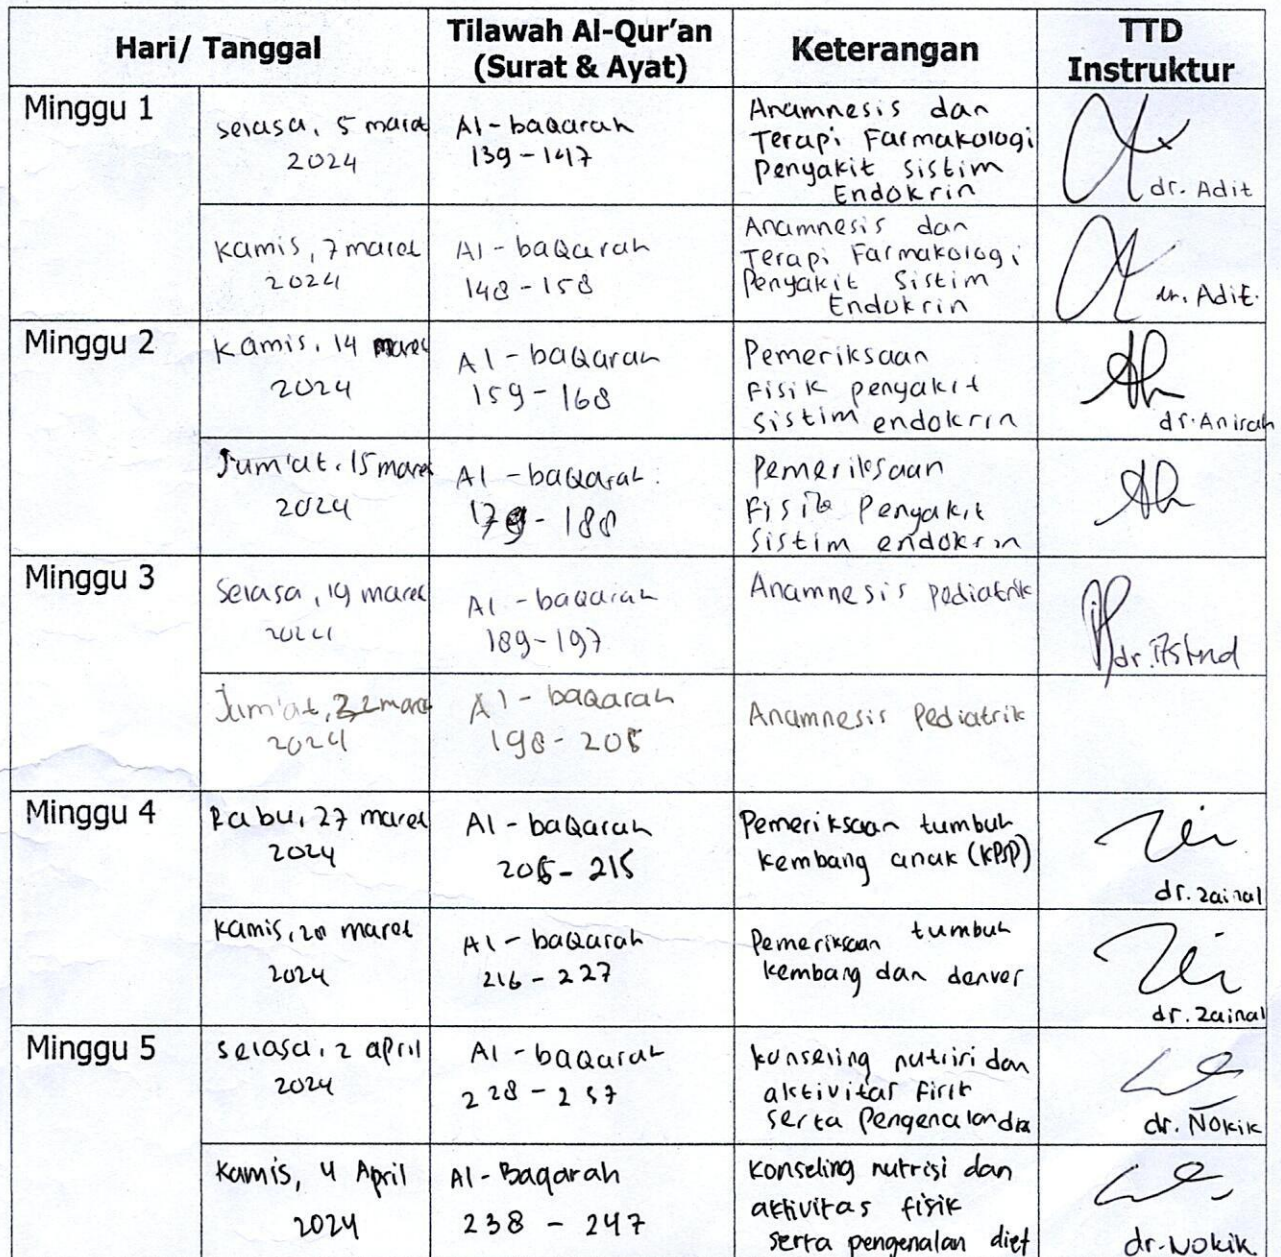 Hari/ Tanggal
Tilawah Al-Qur'an
(Surat & Ayat)
Keterangan
TTD
Instruktur
Minggu 1
Selasa, 5 maret
2024
Al-baqarah
139-147
Anamnesis dan
Terapi Farmakologi
Penyakit Sistim
Endokrin
dr. Adit
Kamis, 7 maret
2024
Al-baqarah
148-158
Anamnesis dan
Terapi Farmakologi
Penyakit Sistim
Endokrin
dr. Adit
Minggu 2
Kamis, 14 maret
2024
Al-baqarah
159-168
Pemeriksaan
Fisik penyakit
sistim endokrin
dr. Anisah
Jum'at, 15 maret
2024
Al-baqarah
- 188
Pemeriksaan
Fisik Penyakit
sistim endokrin
Minggu 3
Selasa, 19 maret
2024
Al-baqarah
189-197
Anamnesis pediatrik
dr.
Jum'at, 22 maret
2024
Al-baqarah
198-205
Anamnesis Pediatrik
Minggu 4
Rabu, 27 maret
2024
Al-baqarah
206-215
Pemeriksaan tumbuh
kembang anak (KPSP)
dr. Zainal
Kamis, 28 maret
2024
Al-baqarah
216-227
Pemeriksaan tumbuh
kembang dan denver
dr. Zainal
Minggu 5
Selasa, 2 april
2024
Al-baqarah
228-237
konseling nutrisi dan
aktivitas fisik
serta Pengenalan
dr. Nokik
Kamis, 4 April
2024
Al-Baqarah
238 - 247
Konseling nutrisi dan
aktivitas fisik
serta pengenalan diet
dr. Nokik